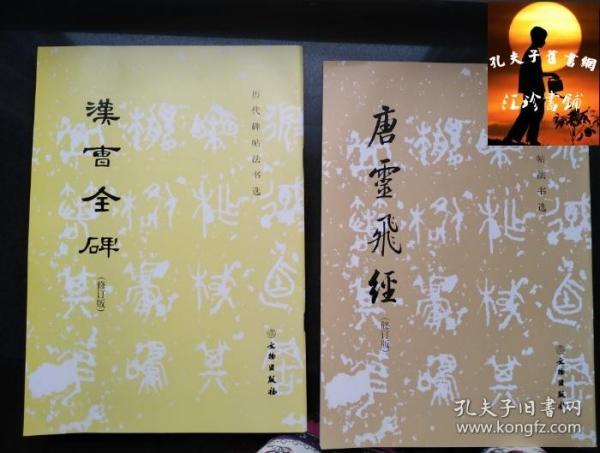 漢曹全碑
(修订版)
历代碑帖法书选
文物出版社
唐靈飛經
(修订版)
帖法书选
文物出版社
孔夫子舊書網
江珍書鋪
孔夫子旧书网
www.kongfz.com